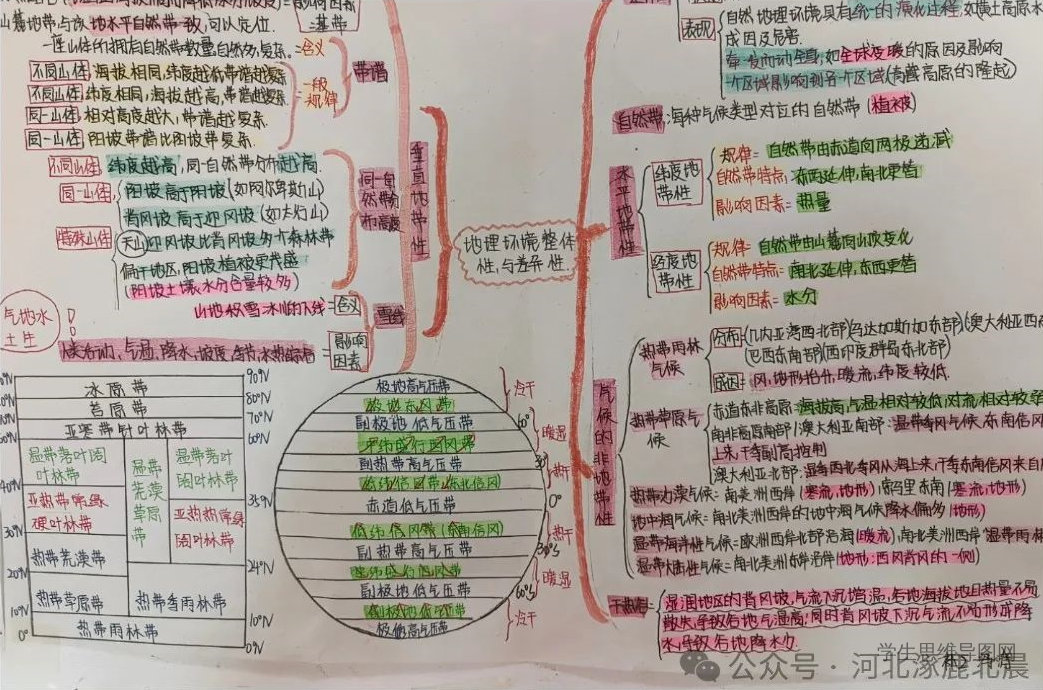 山麓地带与该地水平自然带一致,可以定位.
基带
一座山体的拥有自然带数量自然为复杂.=含义
不同山体,海拔相同,纬度越低带谱越复杂
不同山体纬度相同,海拔越高,带谱越复杂.
同一山体,相对高度越大,带谱越复杂.
同一山体,阳坡带谱比阴坡带复杂.
一般规律
带谱
不同山体 纬度越高,同一自然带分布越高.
同一山体
阳坡高于阴坡(如阿尔卑斯山)
背风坡高于迎风坡(如太行山)
特殊山体
天山 迎风坡比背风坡多个森林带
偏干地区,阴坡植被更茂盛
(阴坡土壤水分含量较多)
同一自然带分布高度
山地积雪冰川的下线=含义
雪线
影响因素
垂直地带性
气地水土生
地理环境整体性,与差异性
表现
自然地理环境具有统一的演化过程,如黄土高原水
成因及危害.
牵一发而动全身,如全球变暖的原因及影响
一个区域影响到另一个区域(青藏高原的隆起)
自然带:每种气候类型对应的自然带(植被)
水平地带性
纬度地带性
规律=自然带由赤道向两极递减
自然带特点:东西延伸,南北更替
影响因素=热量
经度地带性
规律=自然带由山麓向山顶变化
自然带特点=南北延伸,东西更替
影响因素=水分
气候的非地带性
热带雨林气候
分布=(几内亚湾西北部)(马达加斯加东部)(澳大利亚西南
(巴西东南部)(西印度群岛东北部)
成因=风,地形抬升,暖流,纬度较低.
热带草原气候
赤道东非高原:海拔高,气温相对较低,对流相对较弱
南非高原南部/澳大利亚南部:温带季风气候,东南信风
上来,干季副高控制
澳大利亚北部:湿季西北季风从海上来,干季东南信风来自
热带沙漠气候=南美洲西岸(寒流,地形),索马里东南(寒流,地形)
地中海气候=南北美洲西岸的地中海气候降水偏多(地形)
温带海洋性气候=欧洲西岸北部沿海(暖流),南北美洲西岸温带雨林
温带大陆性气候=南北美洲东岸沿岸(地形:西风背风的一侧)
干热河=
湿润地区的背风坡,气流下沉增温,谷地海拔地且热量不易
散失,导致谷地气温高;同时背风坡下沉气流,不易形成降
水,导致谷地降水少
冰原带
苔原带
亚寒带针叶林带
温带落叶阔叶林带
温带荒漠草原带
温带落叶阔叶林带
亚热带常绿硬叶林带
亚热带常绿阔叶林带
热带荒漠带
热带草原带
热带季雨林带
热带雨林带
90°N
80°N
70°N
60°N
40°N
35°N
30°N
24°N
20°N
10°N
0°
0°N
极地高气压带
极地东风带
副极地低气压带
中纬盛行西风带
副热带高气压带
低纬信风带(东北信风)
赤道低气压带
低纬信风带(东南信风)
副热带高气压带
中纬盛行西风带
副极地低气压带
副极地低气压带
极地高气压带
冷干
60°
暖湿
30°
热干
0°
热干
30°S
暖湿
60°S
冷干
学生思维导图网
公众号·河北涿鹿北晨